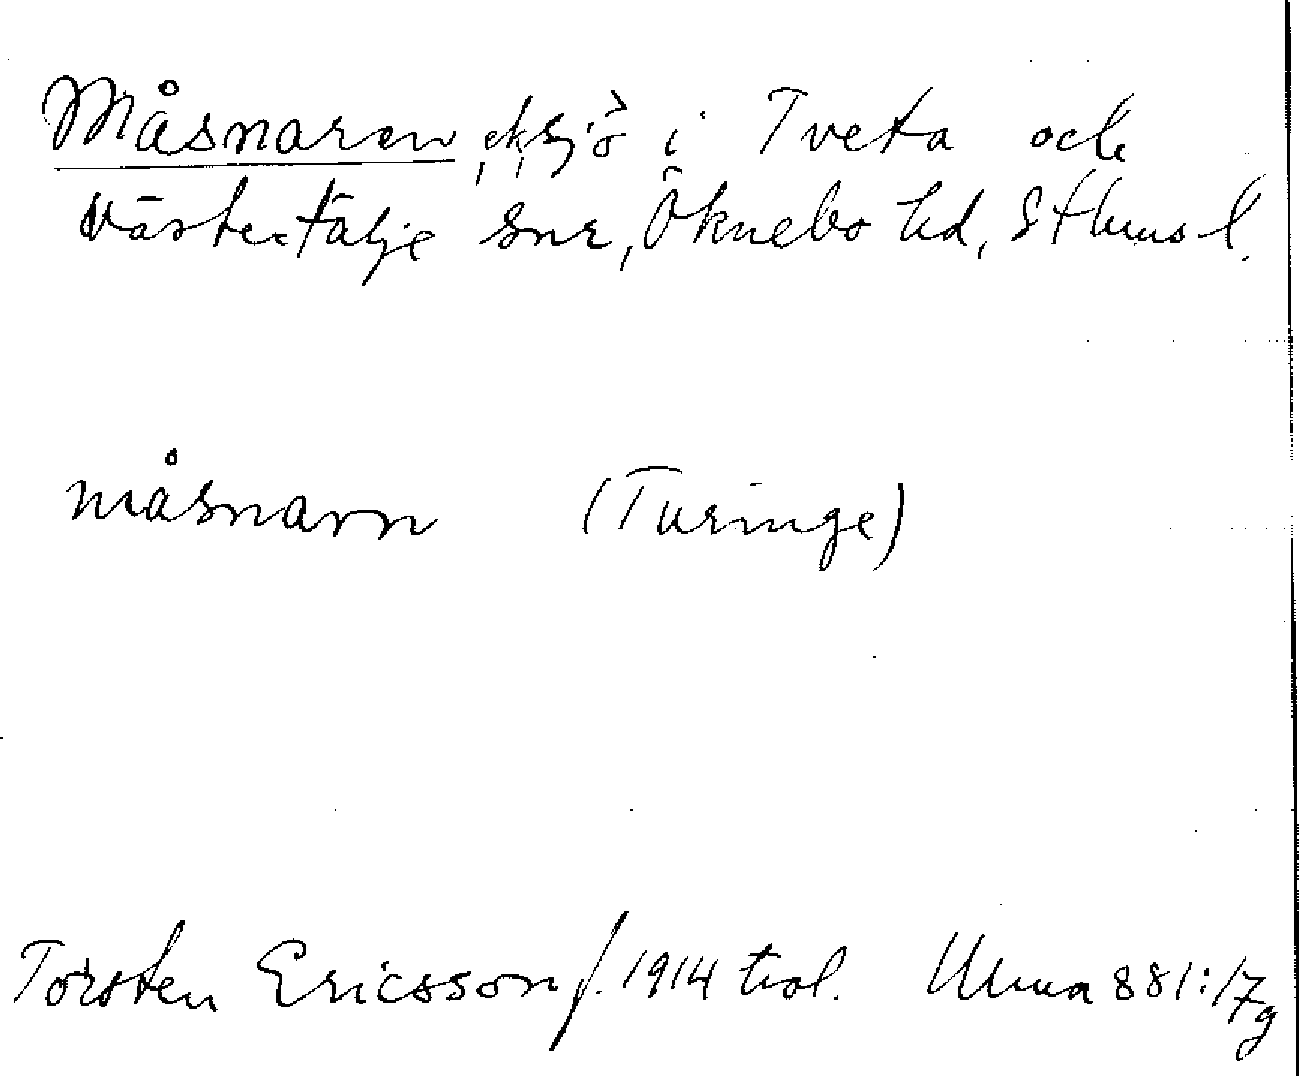 Måsnaren, sjö i Tveta och
Västertälje snr, Öknebo hd, Sthms l.
måsnarn (Turinge)
Torsten Ericsson f. 1914 trol. Uuma 881:17g